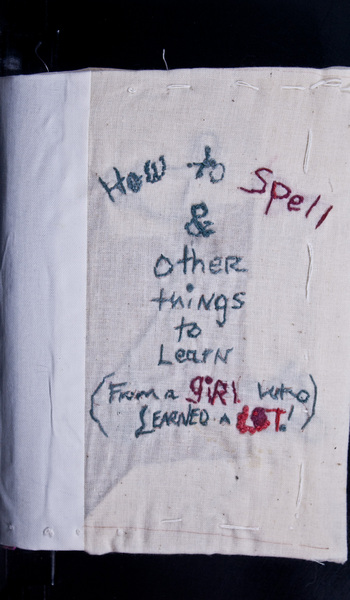 How to Spell
&
other
things
to
Learn
(From a giRl who
LEARNED a LOT!)